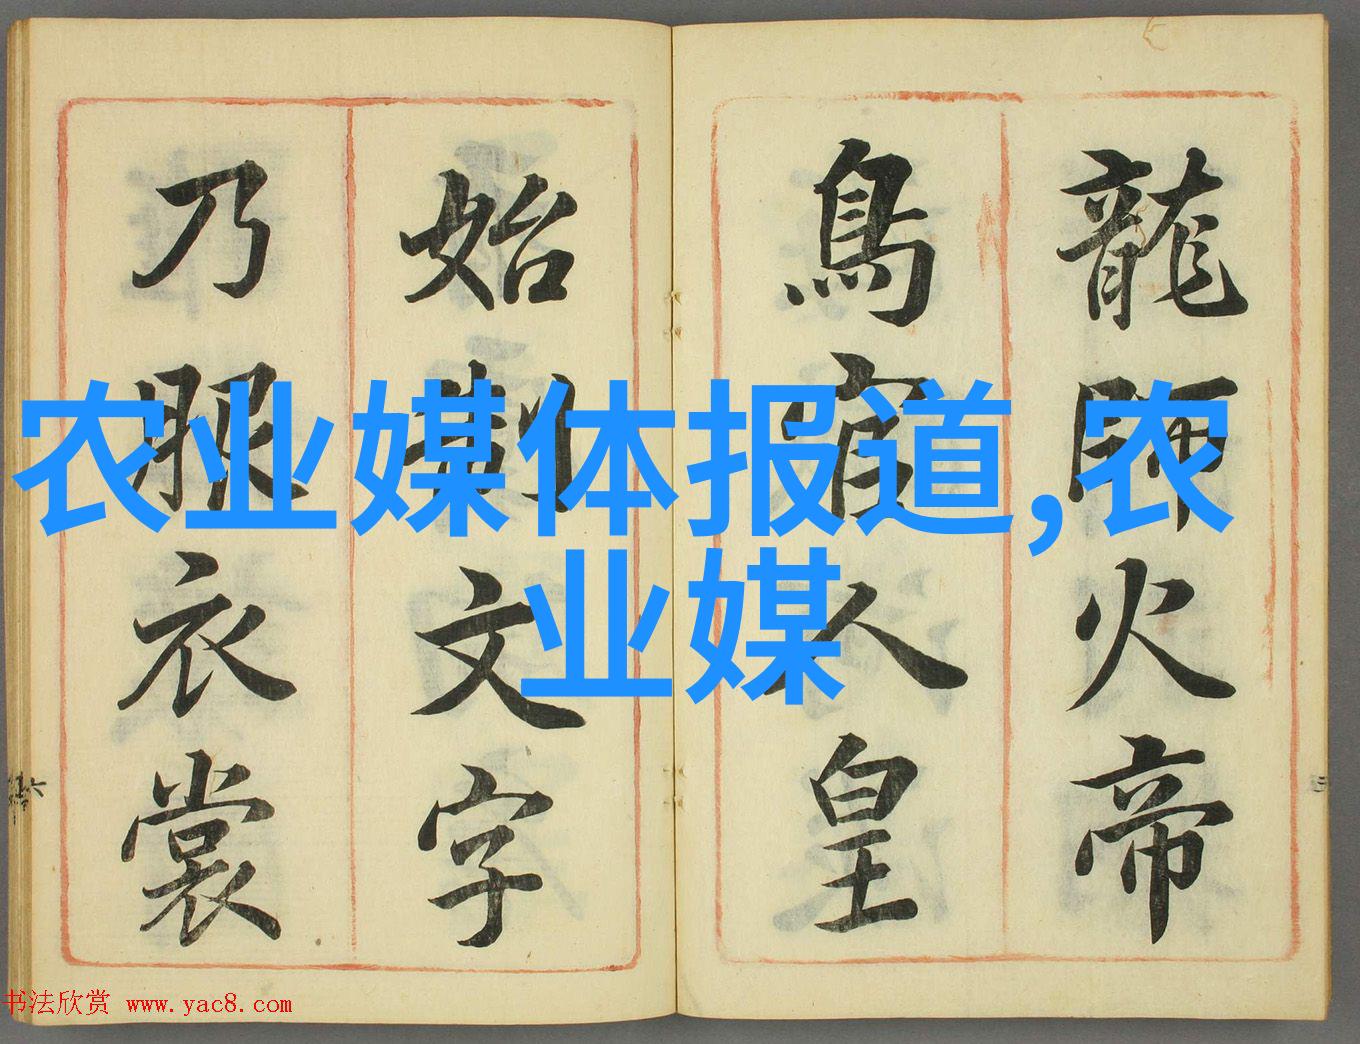 龍師火帝
鳥官人皇
始制文字
乃服衣裳
农业媒体报道,农
业媒
书法欣赏 www.yac8.com